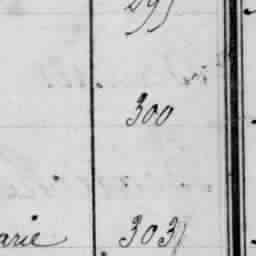 300
arie 303